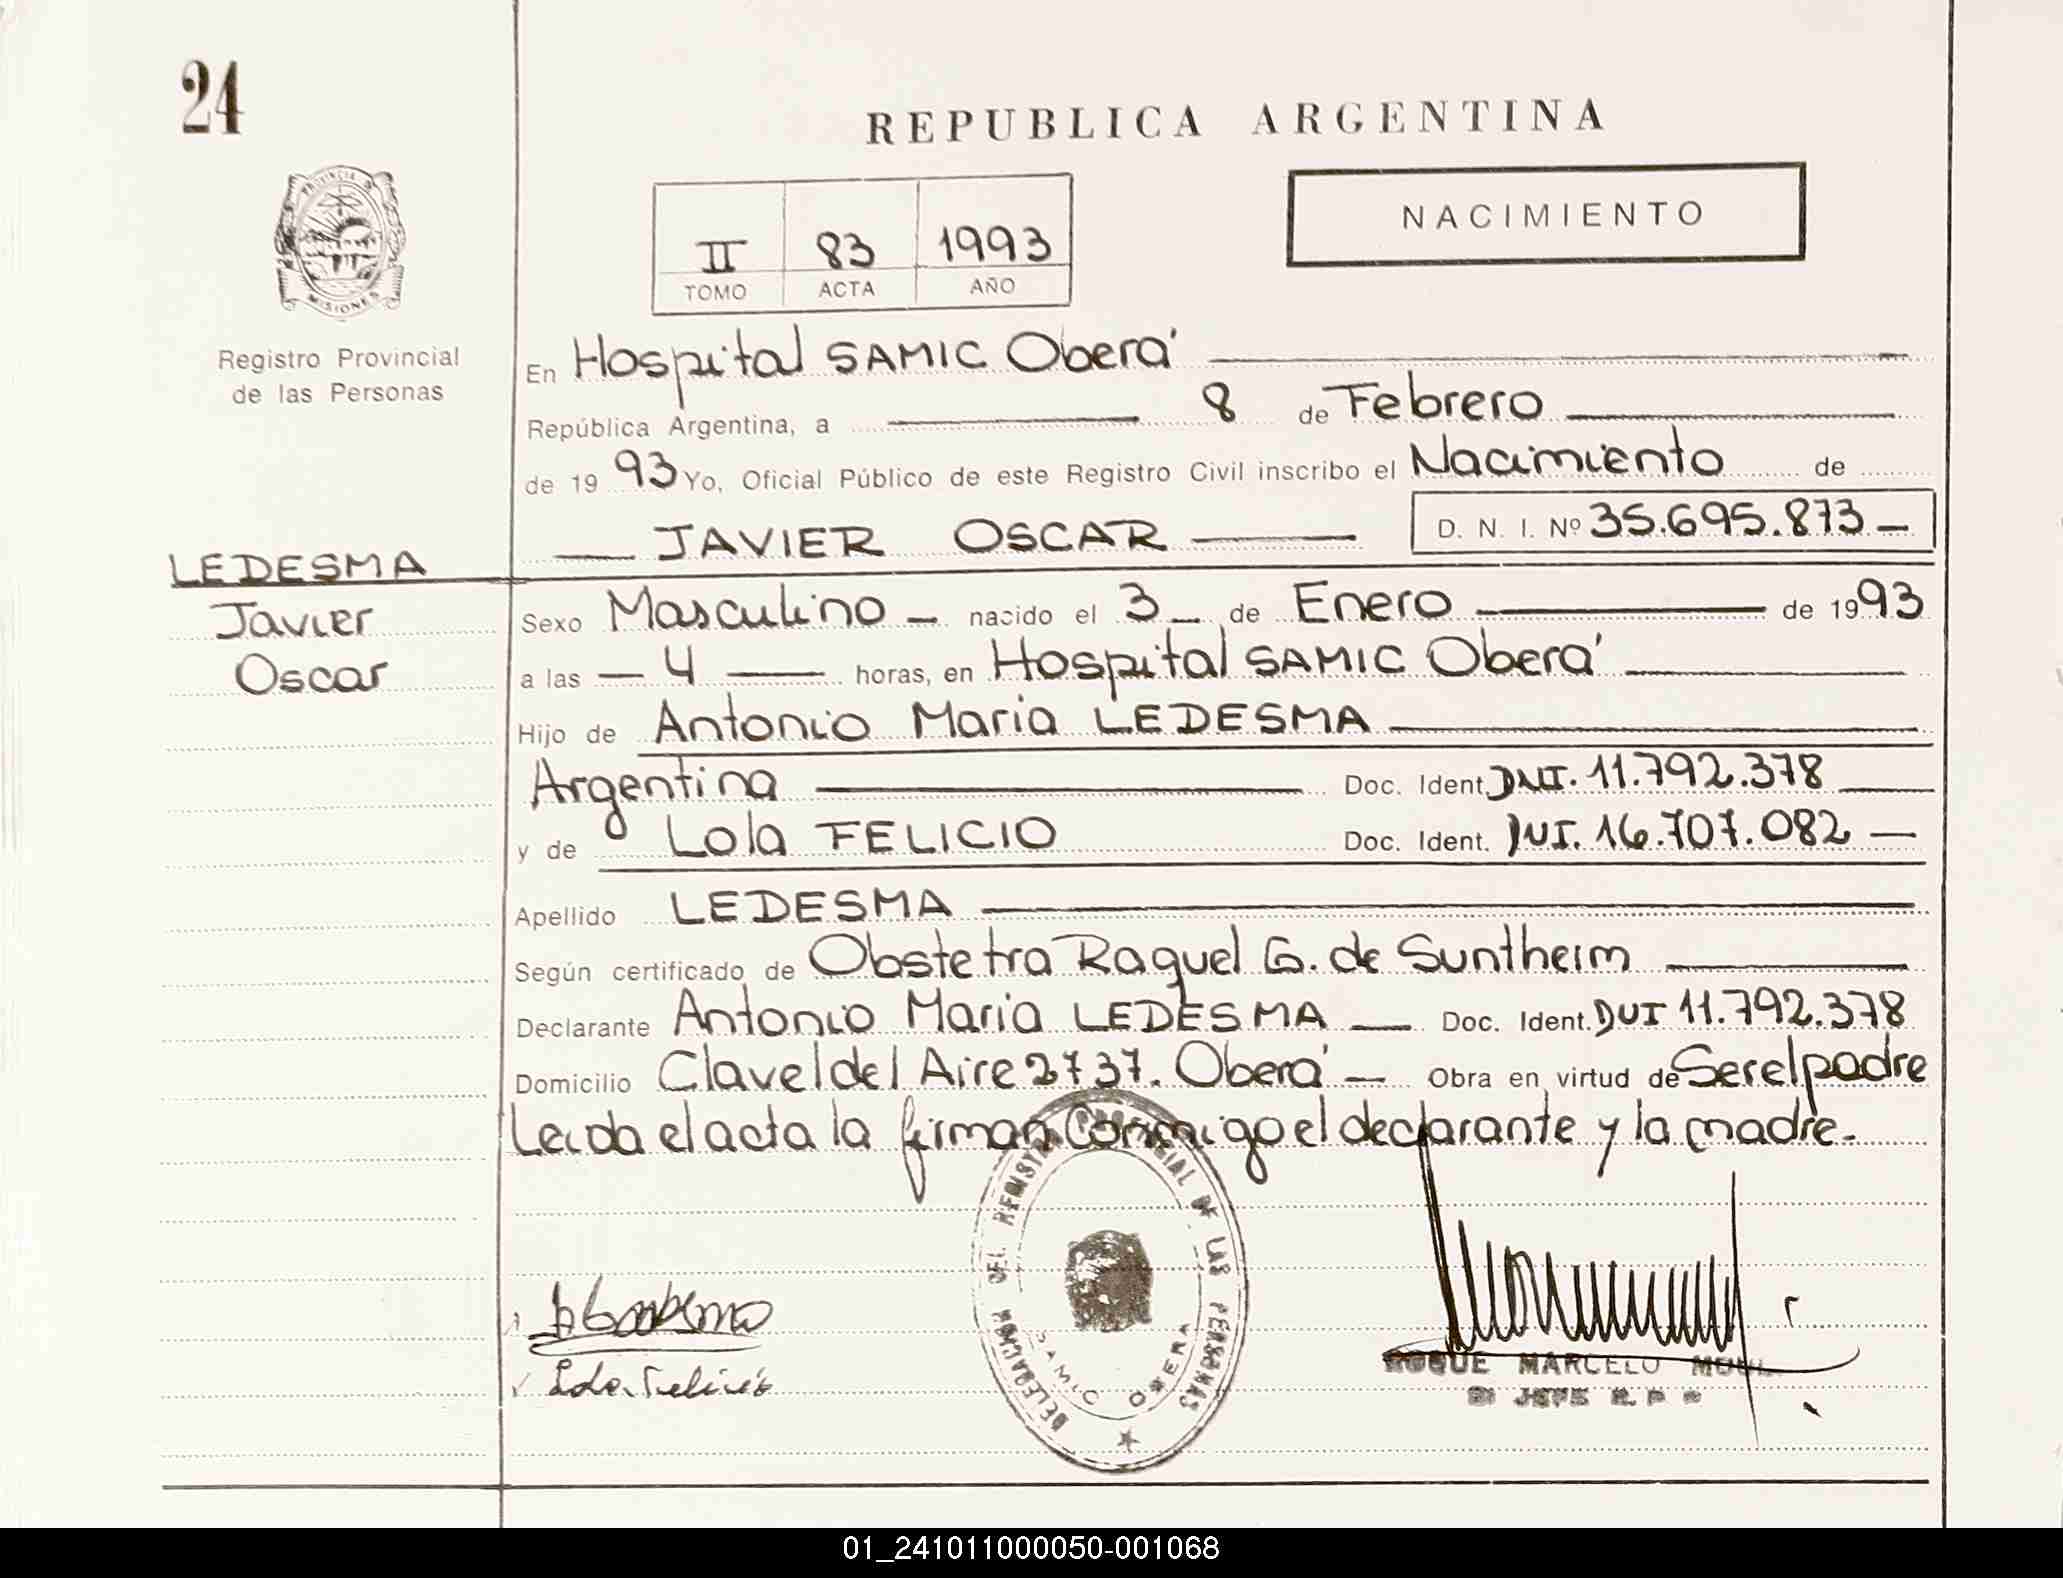 24
REPUBLICA ARGENTINA
NACIMIENTO
II 83 1993
TOMO ACTA AÑO
PROVINCIA DE
MISIONES
Registro Provincial
de las Personas
En Hospital SAMIC Oberá
República Argentina, a 8 de Febrero
de 1993 Yo, Oficial Público de este Registro Civil inscribo el Nacimiento de
JAVIER OSCAR D. N. I. Nº 35.695.873
LEDESMA
Javier
Oscar
Sexo Masculino nacido el 3 de Enero de 1993
a las 4 horas, en Hospital SAMIC Oberá
Hijo de Antonio Maria LEDESMA
Argentina Doc. Ident. DNI. 11.792.378
y de Lola FELICIO Doc. Ident. DNI. 16.707.082
Apellido LEDESMA
Según certificado de Obstetra Raquel G. de Suntheim
Declarante Antonio Maria LEDESMA Doc. Ident. DNI 11.792.378
Domicilio Clavel del Aire 2737. Oberá Obra en virtud de Ser el padre
Leida el acta la firman Conmigo el declarante y la madre.
DELEGACION DEL REGISTRO PROVINCIAL DE LAS PERSONAS
SAMIC OBERA
Lola Felicio
ROQUE MARCELO
JEFE R. P.
01_241011000050-001068